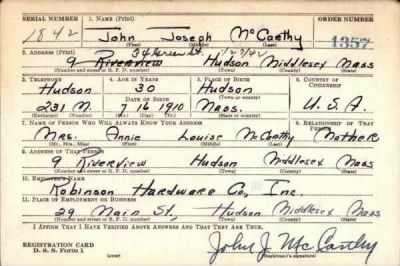 SERIAL NUMBER 1. NAME (Print) ORDER NUMBER
1842 John Joseph McCarthy 1357
(First) (Middle) (Last)
2. ADDRESS (Print) 34 Green St. 1/23/42
9 Riverview Hudson Middlesex Mass
(Number and street or R. F. D. number) (Town) (County) (State)
3. TELEPHONE 4. AGE IN YEARS 5. PLACE OF BIRTH 6. COUNTRY OF CITIZENSHIP
Hudson 30 Hudson
(Exchange) DATE OF BIRTH (Town or county)
231 M. 7 16 1910 Mass. U.S.A.
(Number) (Mo.) (Day) (Yr.) (State or country)
7. NAME OF PERSON WHO WILL ALWAYS KNOW YOUR ADDRESS 8. RELATIONSHIP OF THAT PERSON
Mrs. Annie Louise McCarthy Mother
(Mr., Mrs., Miss) (First) (Middle) (Last)
9. ADDRESS OF THAT PERSON
9 Riverview Hudson Middlesex Mass
(Number and street or R. F. D. number) (Town) (County) (State)
10. EMPLOYER'S NAME
Robinson Hardware Co, Inc.
11. PLACE OF EMPLOYMENT OR BUSINESS
29 Main St, Hudson Middlesex Mass
(Number and street or R. F. D. number) (Town) (County) (State)
I AFFIRM THAT I HAVE VERIFIED ABOVE ANSWERS AND THAT THEY ARE TRUE.
REGISTRATION CARD
D. S. S. Form 1 (over) John J. McCarthy
(Registrant's signature)